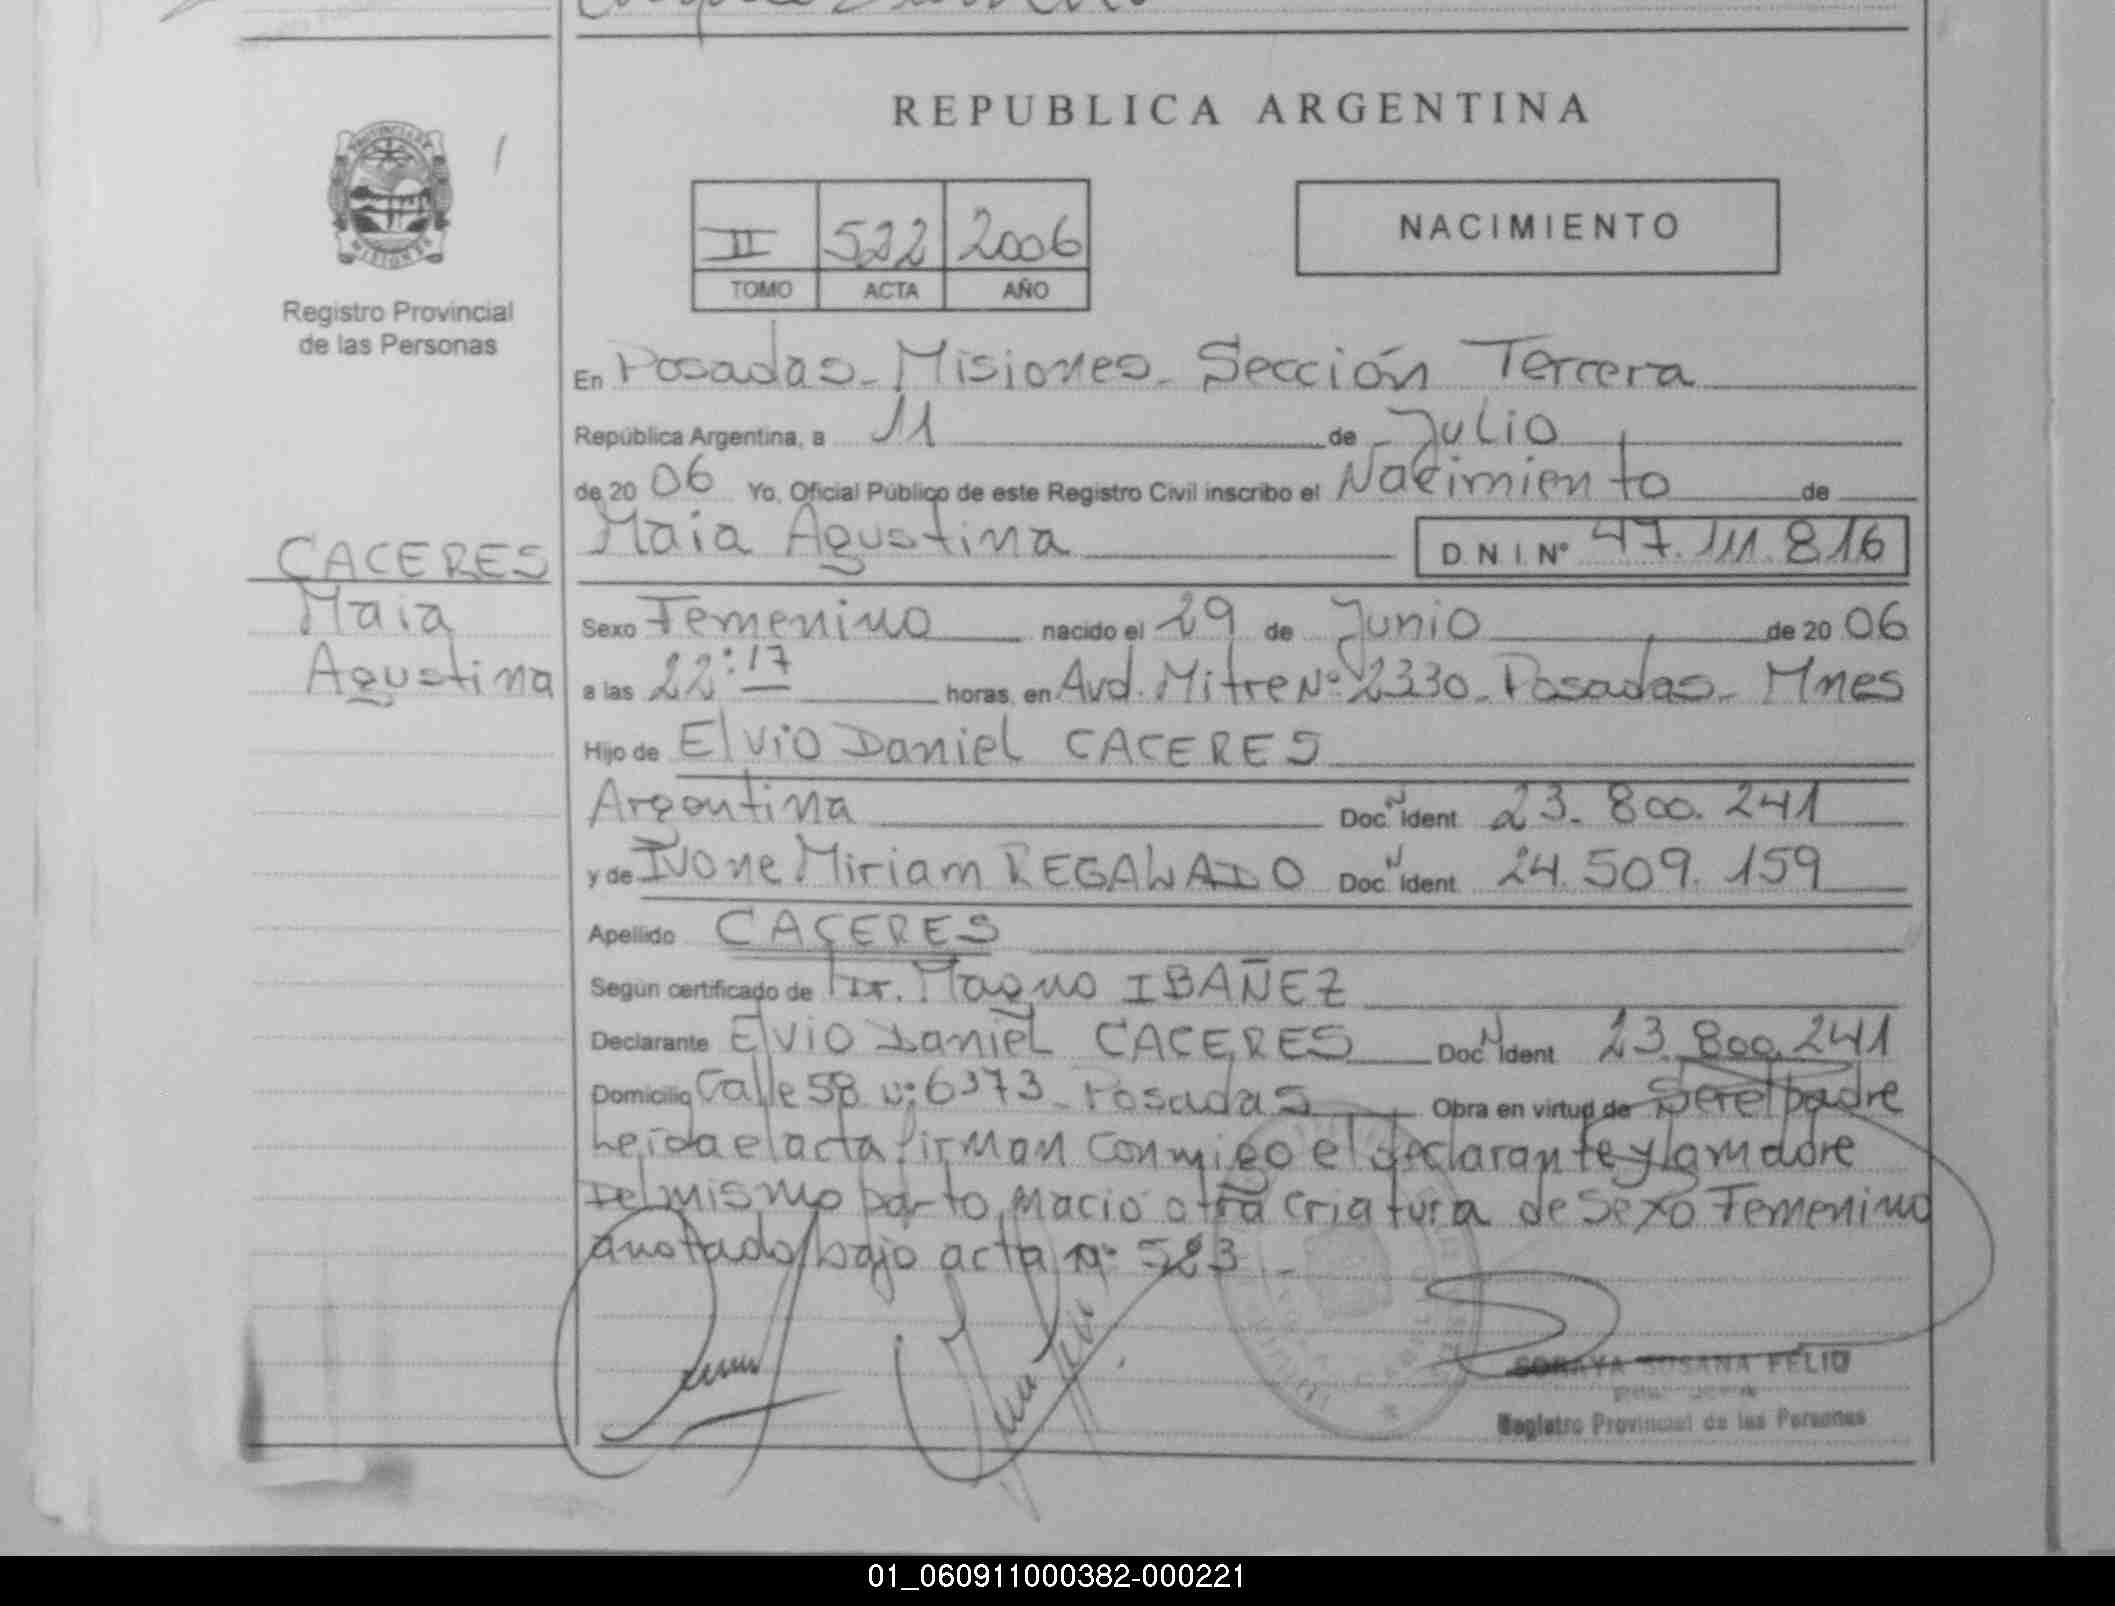 REPUBLICA ARGENTINA
PROVINCIA DE
MISIONES
Registro Provincial
de las Personas
II 522 2006
TOMO ACTA AÑO
NACIMIENTO
En Posadas - Misiones - Sección Tercera
República Argentina, a 11 de Julio
de 2006 Yo, Oficial Público de este Registro Civil inscribo el Nacimiento de
Maia Agustina D.N.I. Nº 47.111.816
CACERES
Maia
Agustina
Sexo Femenino nacido el 29 de Junio de 2006
a las 22:17 horas, en Avd. Mitre Nº 2330 - Posadas - Mnes
Hijo de Elvio Daniel CACERES
Argentina Doc. Ident. 23.800.241
y de Ivone Miriam REGALADO Doc. Ident. 24.509.159
Apellido CACERES
Según certificado de Dr. Magno IBAÑEZ
Declarante Elvio Daniel CACERES Doc. Ident. 23.800.241
Domicilio Calle 58 nº 6373 - Posadas Obra en virtud de Ser el padre
Leída el acta firman conmigo el declarante y la madre
Del mismo parto nació otra criatura de Sexo Femenino
anotado bajo acta nº 523 -
SORAYA SUSANA FELIU
Registro Provincial de las Personas
01_060911000382-000221